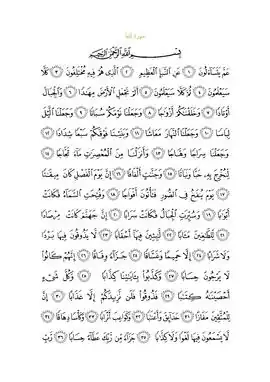 سورة النبإ
بِسْمِ اللَّهِ الرَّحْمَٰنِ الرَّحِيمِ
عَمَّ يَتَسَاءَلُونَ ١ عَنِ النَّبَإِ الْعَظِيمِ ٢ الَّذِي هُمْ فِيهِ مُخْتَلِفُونَ ٣ كَلَّا
سَيَعْلَمُونَ ٤ ثُمَّ كَلَّا سَيَعْلَمُونَ ٥ أَلَمْ نَجْعَلِ الْأَرْضَ مِهَٰدًا ٦ وَالْجِبَالَ
أَوْتَادًا ٧ وَخَلَقْنَٰكُمْ أَزْوَٰجًا ٨ وَجَعَلْنَا نَوْمَكُمْ سُبَاتًا ٩ وَجَعَلْنَا الَّيْلَ
لِبَاسًا ١٠ وَجَعَلْنَا النَّهَارَ مَعَاشًا ١١ وَبَنَيْنَا فَوْقَكُمْ سَبْعًا شِدَادًا ١٢
وَجَعَلْنَا سِرَاجًا وَهَّاجًا ١٣ وَأَنزَلْنَا مِنَ الْمُعْصِرَٰتِ مَاءً ثَجَّاجًا ١٤
لِّنُخْرِجَ بِهِ حَبًّا وَنَبَاتًا ١٥ وَجَنَّٰتٍ أَلْفَافًا ١٦ إِنَّ يَوْمَ الْفَصْلِ كَانَ مِيقَٰتًا
١٧ يَوْمَ يُنفَخُ فِي الصُّورِ فَتَأْتُونَ أَفْوَاجًا ١٨ وَفُتِحَتِ السَّمَاءُ فَكَانَتْ
أَبْوَٰبًا ١٩ وَسُيِّرَتِ الْجِبَالُ فَكَانَتْ سَرَابًا ٢٠ إِنَّ جَهَنَّمَ كَانَتْ مِرْصَادًا
٢١ لِّلطَّٰغِينَ مَـَٔابًا ٢٢ لَّٰبِثِينَ فِيهَا أَحْقَابًا ٢٣ لَّا يَذُوقُونَ فِيهَا بَرْدًا
وَلَا شَرَابًا ٢٤ إِلَّا حَمِيمًا وَغَسَّاقًا ٢٥ جَزَاءً وِفَاقًا ٢٦ إِنَّهُمْ كَانُوا
لَا يَرْجُونَ حِسَابًا ٢٧ وَكَذَّبُوا بِـَٔايَٰتِنَا كِذَّابًا ٢٨ وَكُلَّ شَيْءٍ
أَحْصَيْنَٰهُ كِتَٰبًا ٢٩ فَذُوقُوا فَلَن نَّزِيدَكُمْ إِلَّا عَذَابًا ٣٠ إِنَّ
لِلْمُتَّقِينَ مَفَازًا ٣١ حَدَائِقَ وَأَعْنَٰبًا ٣٢ وَكَوَاعِبَ أَتْرَابًا ٣٣ وَكَأْسًا دِهَاقًا ٣٤
لَّا يَسْمَعُونَ فِيهَا لَغْوًا وَلَا كِذَّٰبًا ٣٥ جَزَاءً مِّن رَّبِّكَ عَطَاءً حِسَابًا ٣٦ رَّبِّ